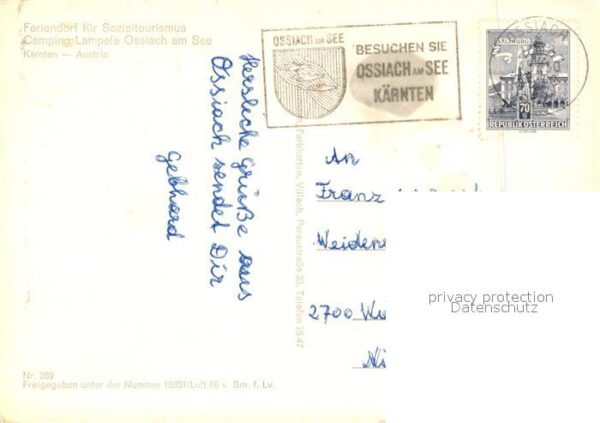 Feriendorf für Sozialtourismus
Camping Lampele Ossiach am See
Kärnten — Austria
OSSIACH AM SEE
BESUCHEN SIE
OSSIACH AM SEE
KÄRNTEN
OSSIACH
70
REPUBLIK ÖSTERREICH
Herzliche Grüße aus
Ossiach sendet Dir
Gebhard
Farbkarton, Villach, Peraustraße 33, Telefon 75 47
An
Franz
2700
privacy protection
Datenschutz
Nr. 289
Freigegeben unter der Nummer 16831/Luft 66 v. Bm. f. Lv.